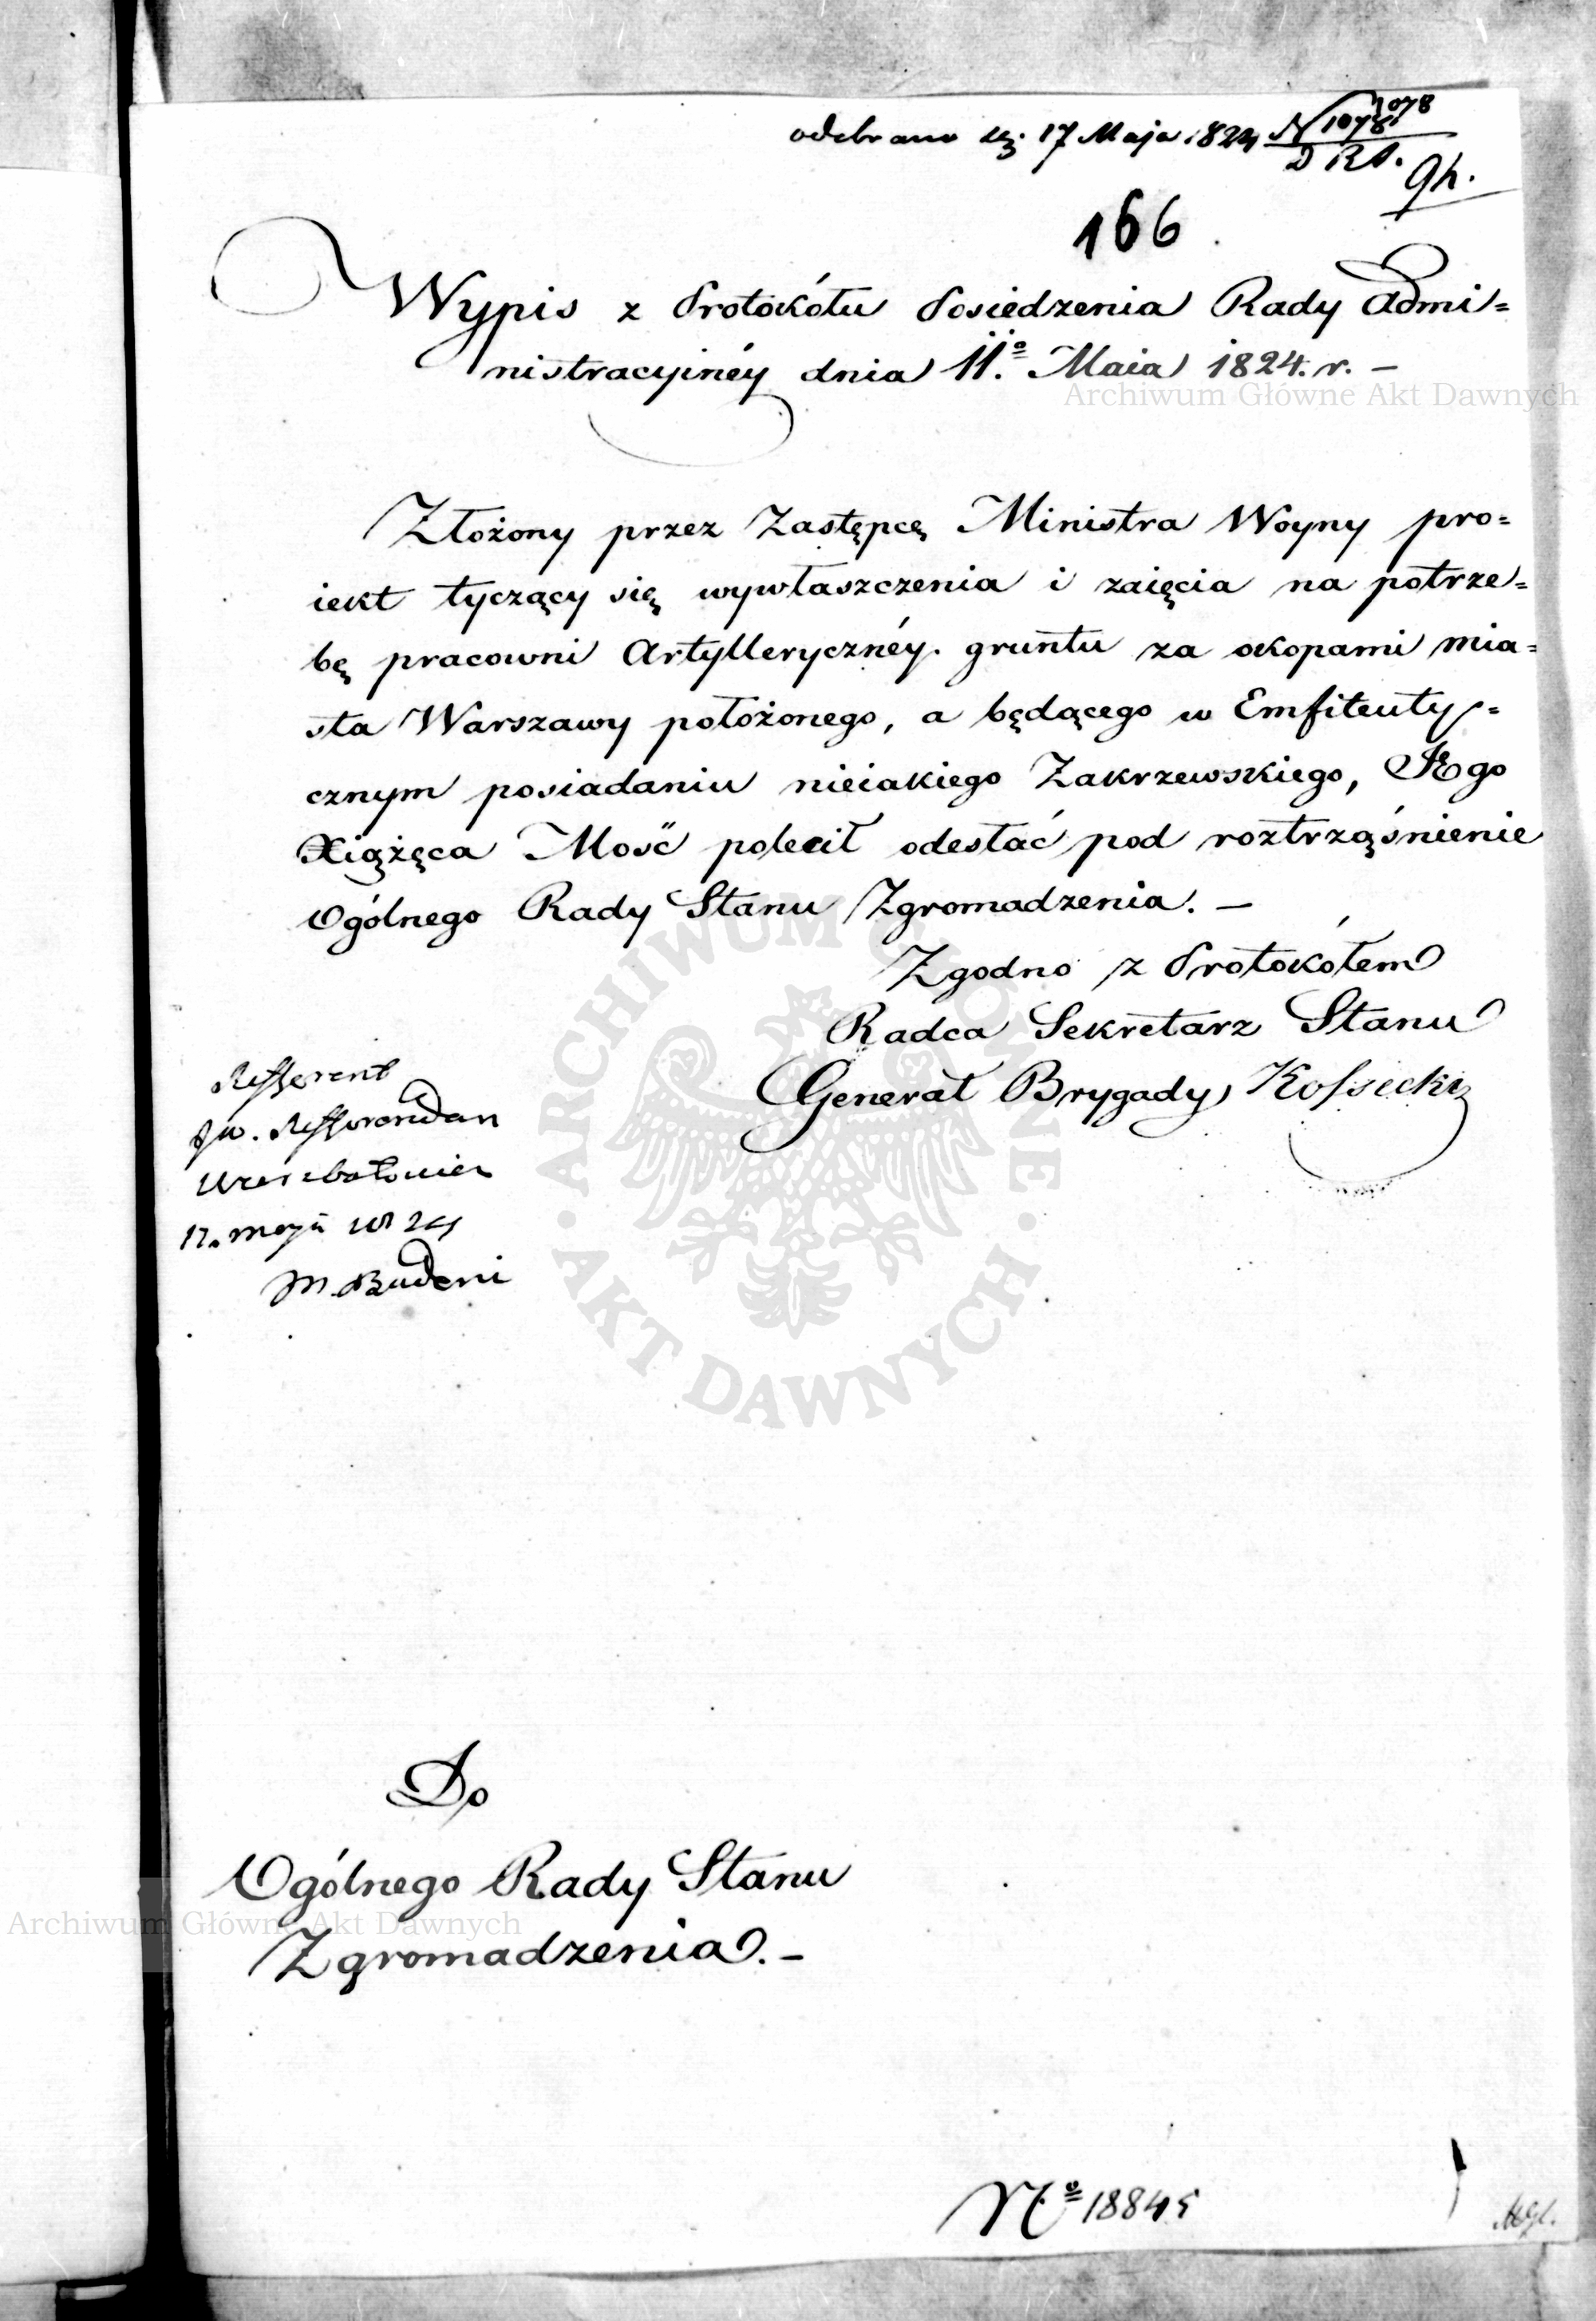 odebrano 17 Maja 1824 N 1078
1078
D R S.
166
Wypis z Protokółu Posiedzenia Rady Admi=
nistracyinéy dnia 11.º Maia 1824. r. —
Archiwum Główne Akt Dawnych
Złożony przez Zastępcę Ministra Woyny pro=
iekt tyczący się wywłaszczenia i zaięcia na potrze=
bę pracowni Artyllerycznéy. gruntu za okopami mia=
sta Warszawy położonego, a będącego w Emfiteuty=
cznym posiadaniu nieiakiego Zakrzewskiego, JEgo
Xiążęca Mość polecił odesłać pod roztrząśnienie
Ogólnego Rady Stanu Zgromadzenia. —
Zgodno z Protokółem
Radca Sekretarz Stanu
Generał Brygady Kossecki
ARCHIWUM GŁÓWNE · AKT DAWNYCH ·
Refferent
JW. Refferendarz
17. maja
M. Badeni
Do
Ogólnego Rady Stanu
Archiwum Główne Akt Dawnych
Zgromadzenia. —
Nº 18845